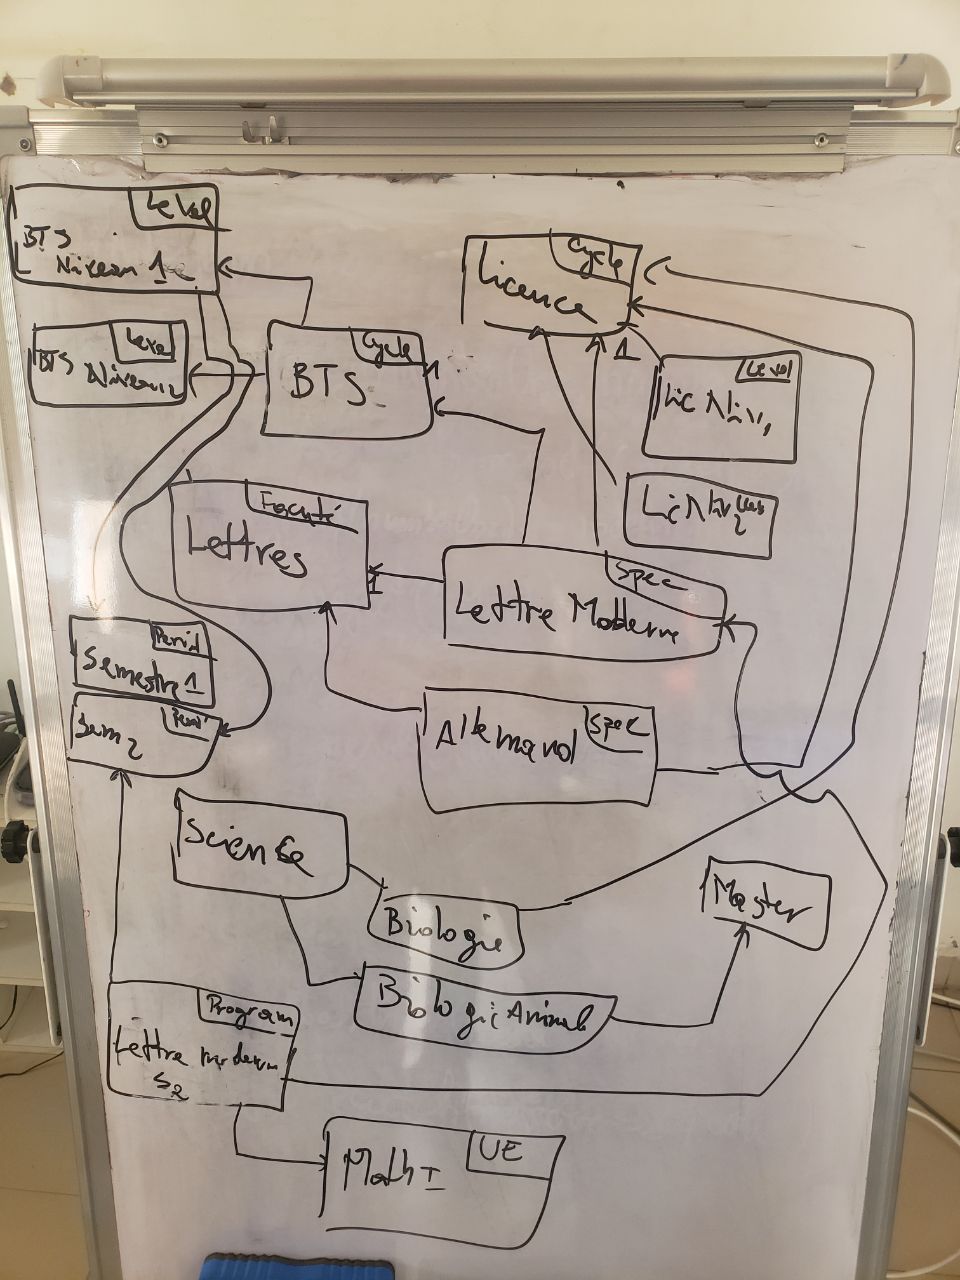 Level
BTS
Niveau 1
Cycle
Licence
1
Level
BTS Niveau 2
Cycle
BTS
1
Level
Lic Niv 1
Lic Niv 2
Faculté
Lettres
1
Spec
Lettre Moderne
Period
Semestre 1
Sem 2
Spec
Allemand
Science
Biologie
Master
Biologie Animal
Program
Lettre modern
S2
UE
Math I